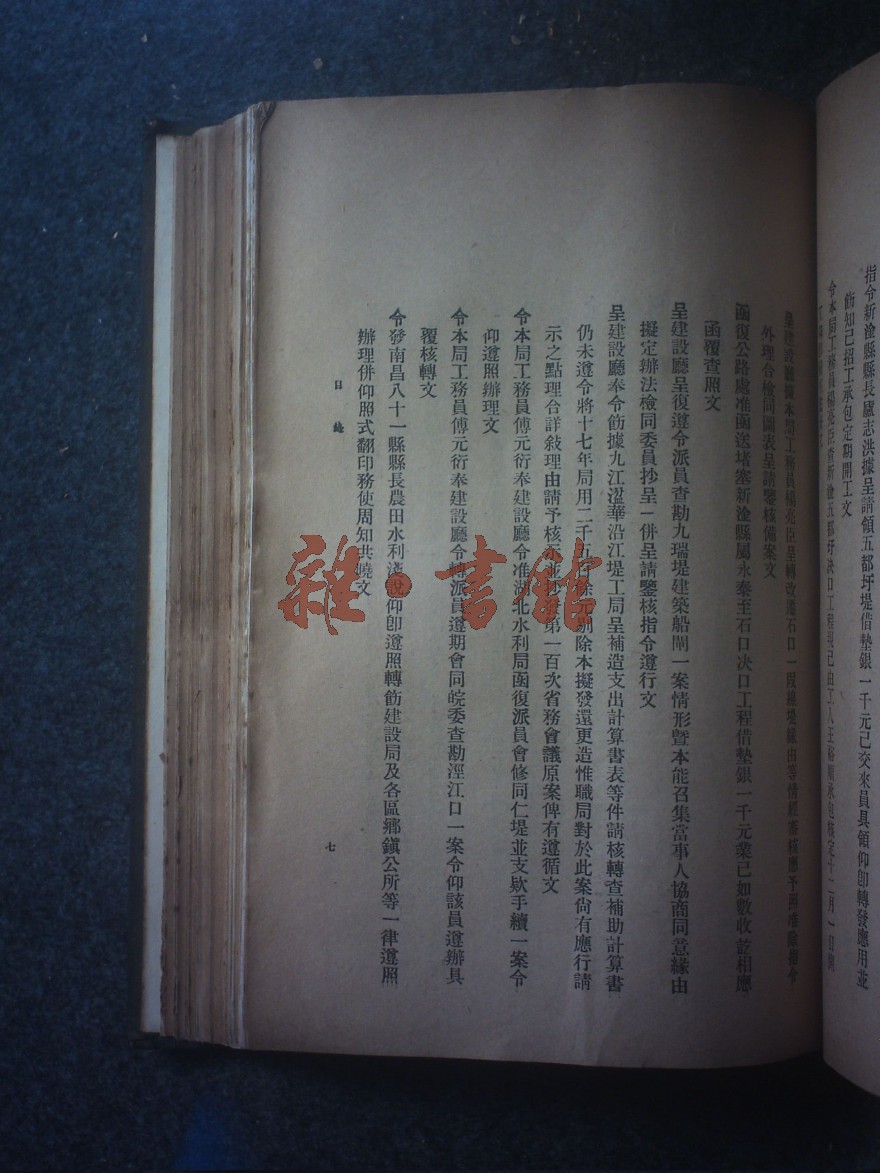 指令新淦縣縣長盧志洪據呈請領五都圩堤借墊銀一千元已交來員具領仰卽轉發應用並
飭知已招工承包定期開工文
令本局工務員楊亮臣
外理合檢同圖表呈請鑒核備案文
函復公路處准函送堵塞新淦縣屬永泰至石口決口工程借墊銀一千元業已如數收訖相應
函覆查照文
呈建設廳呈復遵令派員查勘九瑞堤建築船閘一案情形暨本能召集當事人協商同意緣由
擬定辦法檢同委員抄呈一併呈請鑒核指令遵行文
呈建設廳奉令飭據九江湓華沿江堤工局呈補造支出計算書表等件請核轉查補助計算書
仍未遵令將十七年局用二千五百餘元剔除本擬發還更造惟職局對於此案尙有應行請
示之點理合詳敍理由請予核示並抄發第一百次省務會議原案俾有遵循文
令本局工務員傅元衍奉建設廳令准湖北水利局函復派員會修同仁堤並支欵手續一案令
仰遵照辦理文
令本局工務員傅元衍奉建設廳令轉派員遵期會同皖委查勘涇江口一案令仰該員遵辦具
覆核轉文
令發南昌八十一縣縣長農田水利淺說仰卽遵照轉飭建設局及各區鄉鎭公所等一律遵照
辦理併仰照式翻印務使周知共曉文
目錄
七
雜·書館